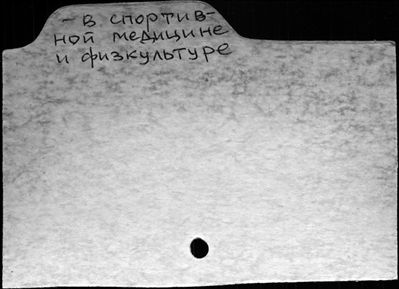 - в спортив-
ной медицине
и физкультуре